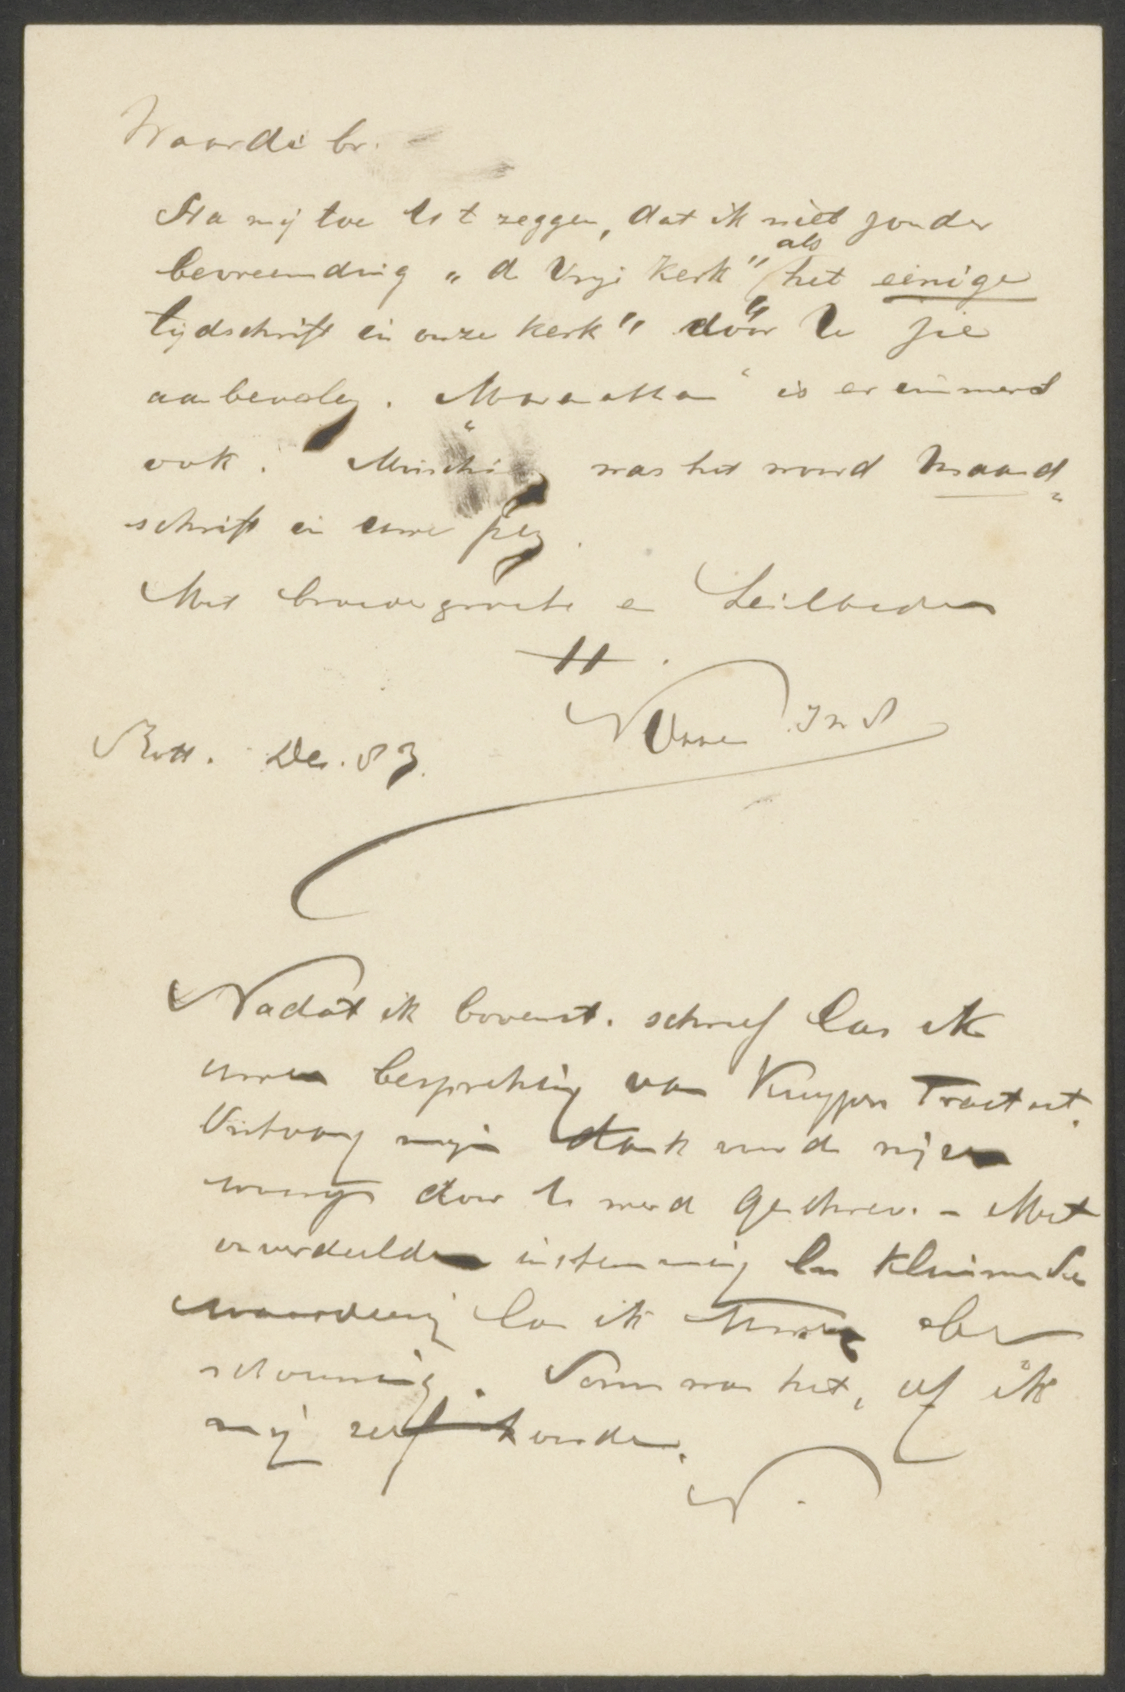 Waarde br.
Sta mij toe U t zeggen, dat ik niet zonder
bevreemding „de Vrije Kerk" als „het eenige
tijdschrift in onze kerk" door U zie
aanbevolen. „Maranatha" is er immers
ook. Misschien was het woord Maand„
schrift in uwe pen.
Met broedergroete en heilbede
tt.
N
Rott. Dec. 83.
Nadat ik bovenst. schreef las ik
uwe bespreking van Kuypers Tractaat.
Ontvang mijn dank voor de wijze
door U werd geschreven. - Met
onverdeelde instemming en klimmende
waardeering las ik Uwe be
schouwing. Soms was het, of ik
mij zelf hoorde.
N.